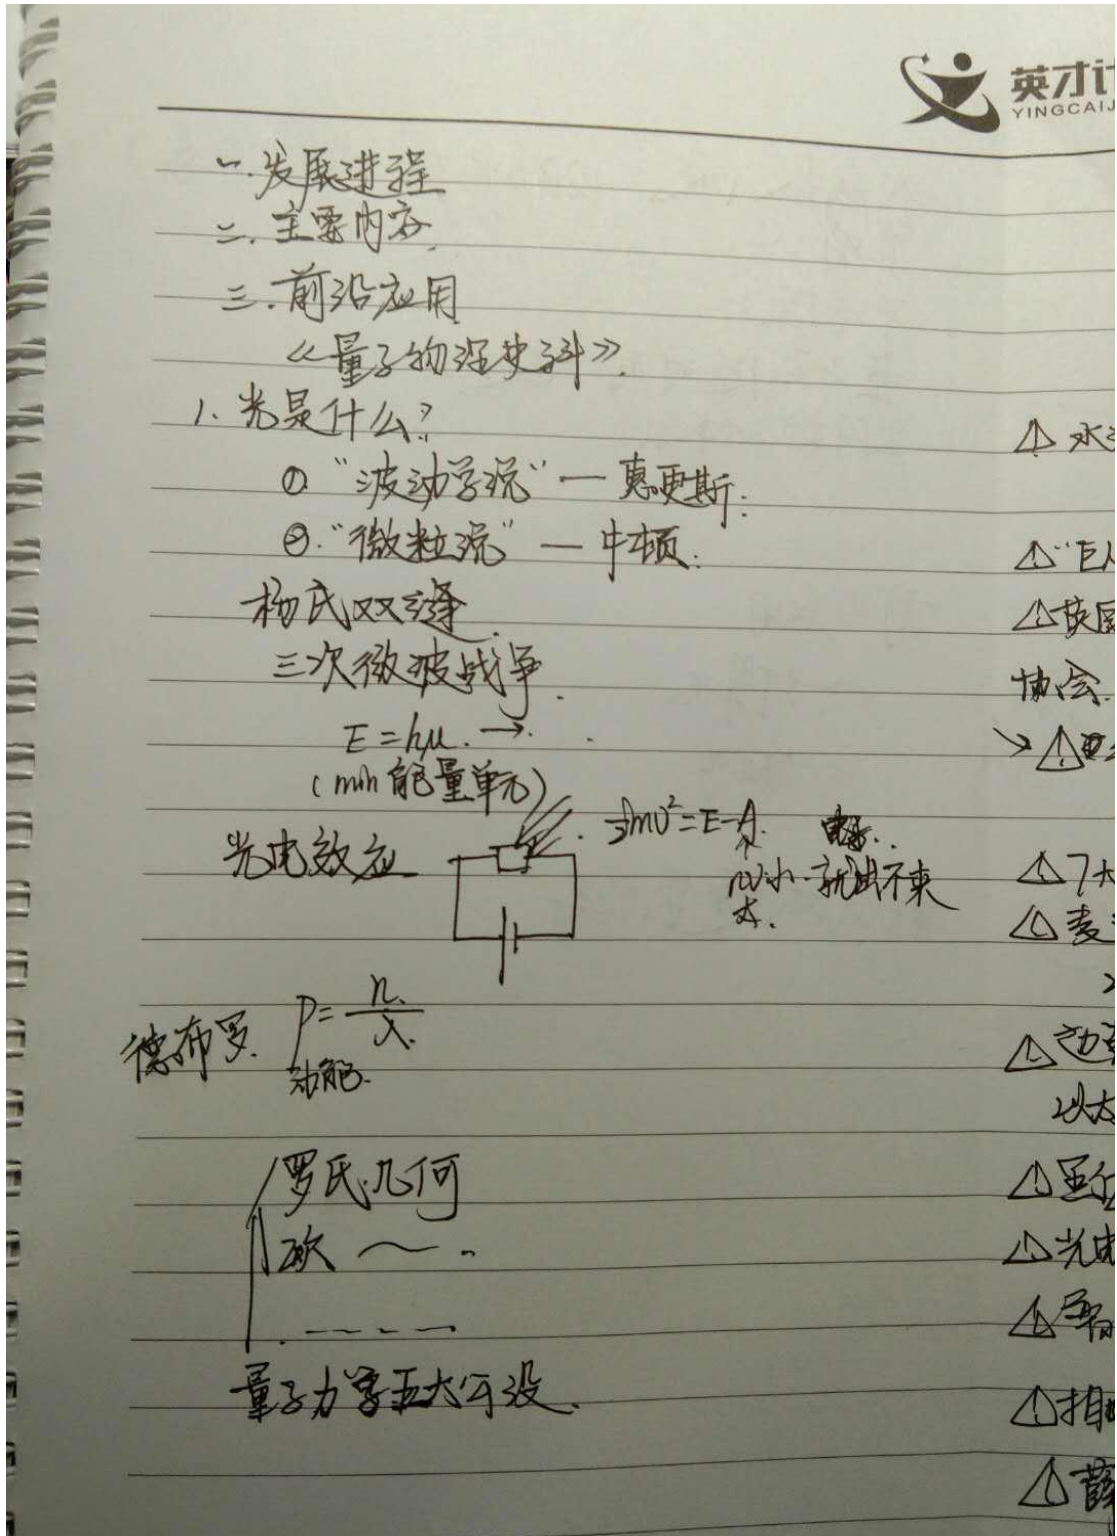 英才计
YINGCAIJ
一.发展进程
二.主要内容
三.前沿应用
《量子物理史科》
1.光是什么?
① “波动学说” — 惠更斯.
②.“微粒说” — 牛顿.
杨氏双缝.
三次微波战争.
E=hμ. →.
(min能量单元)
光电效应
½mv²=E-A.
小.就出不来
大.
德布罗.
P=h/λ.
动能.
罗氏几何
欧 ～
量子力学五大假设.
⚠ 水
⚠ “巨人
⚠ 英国
协会.
→ ⚠
⚠ 7大
⚠ 麦
⚠ 迈
以太
⚠
⚠ 光电
⚠ 普
⚠ 相
⚠ 薛